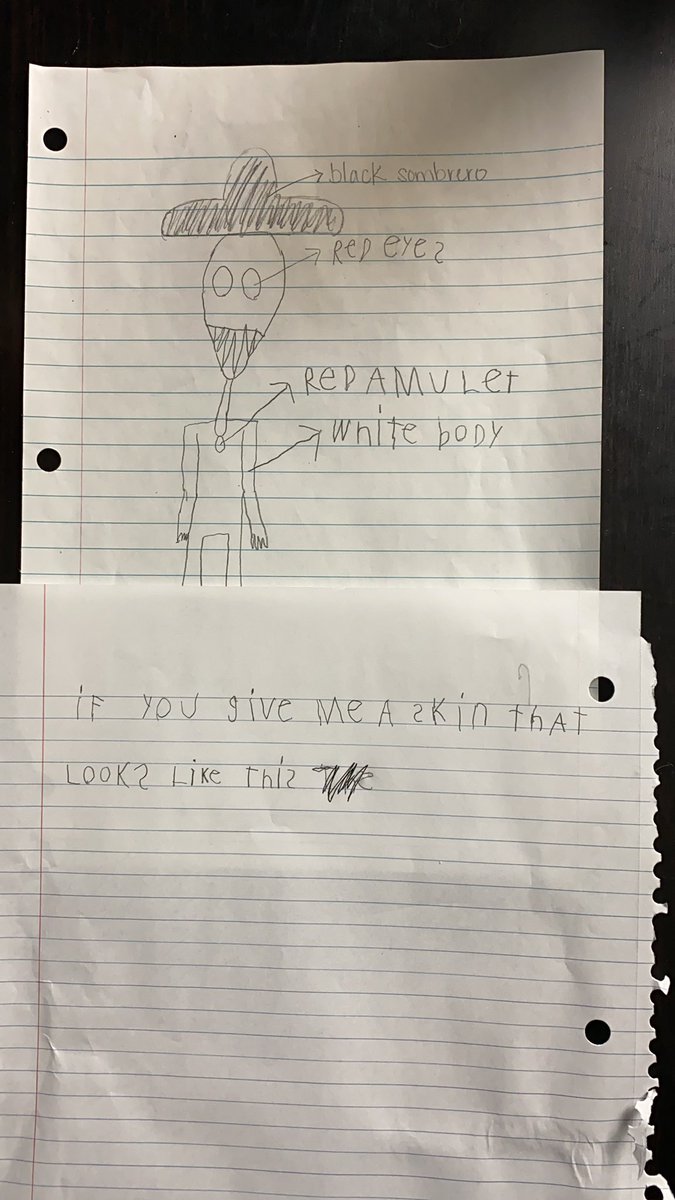 black sombrero
RED eyes
RED AMULet
white body
iF you give me A skin thAt
LOOKS Like this